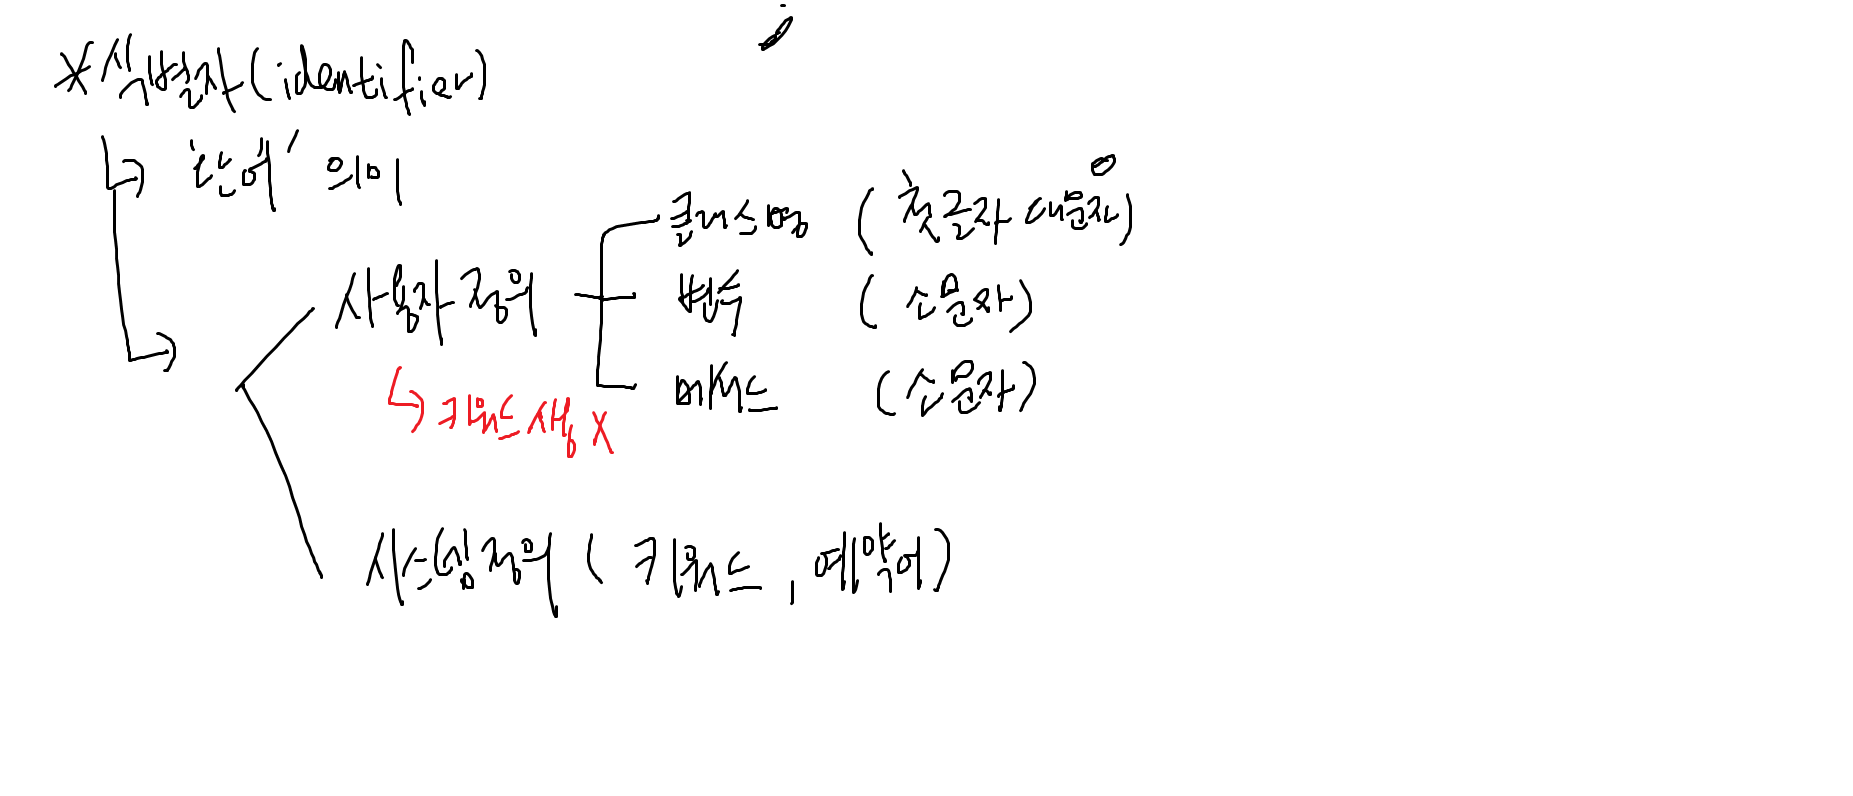 *식별자(identifier)
'단어' 의미
사용자 정의
클래스명 (첫글자 대문자)
변수 (소문자)
메서드 (소문자)
키워드 사용 X
시스템 정의 (키워드, 예약어)